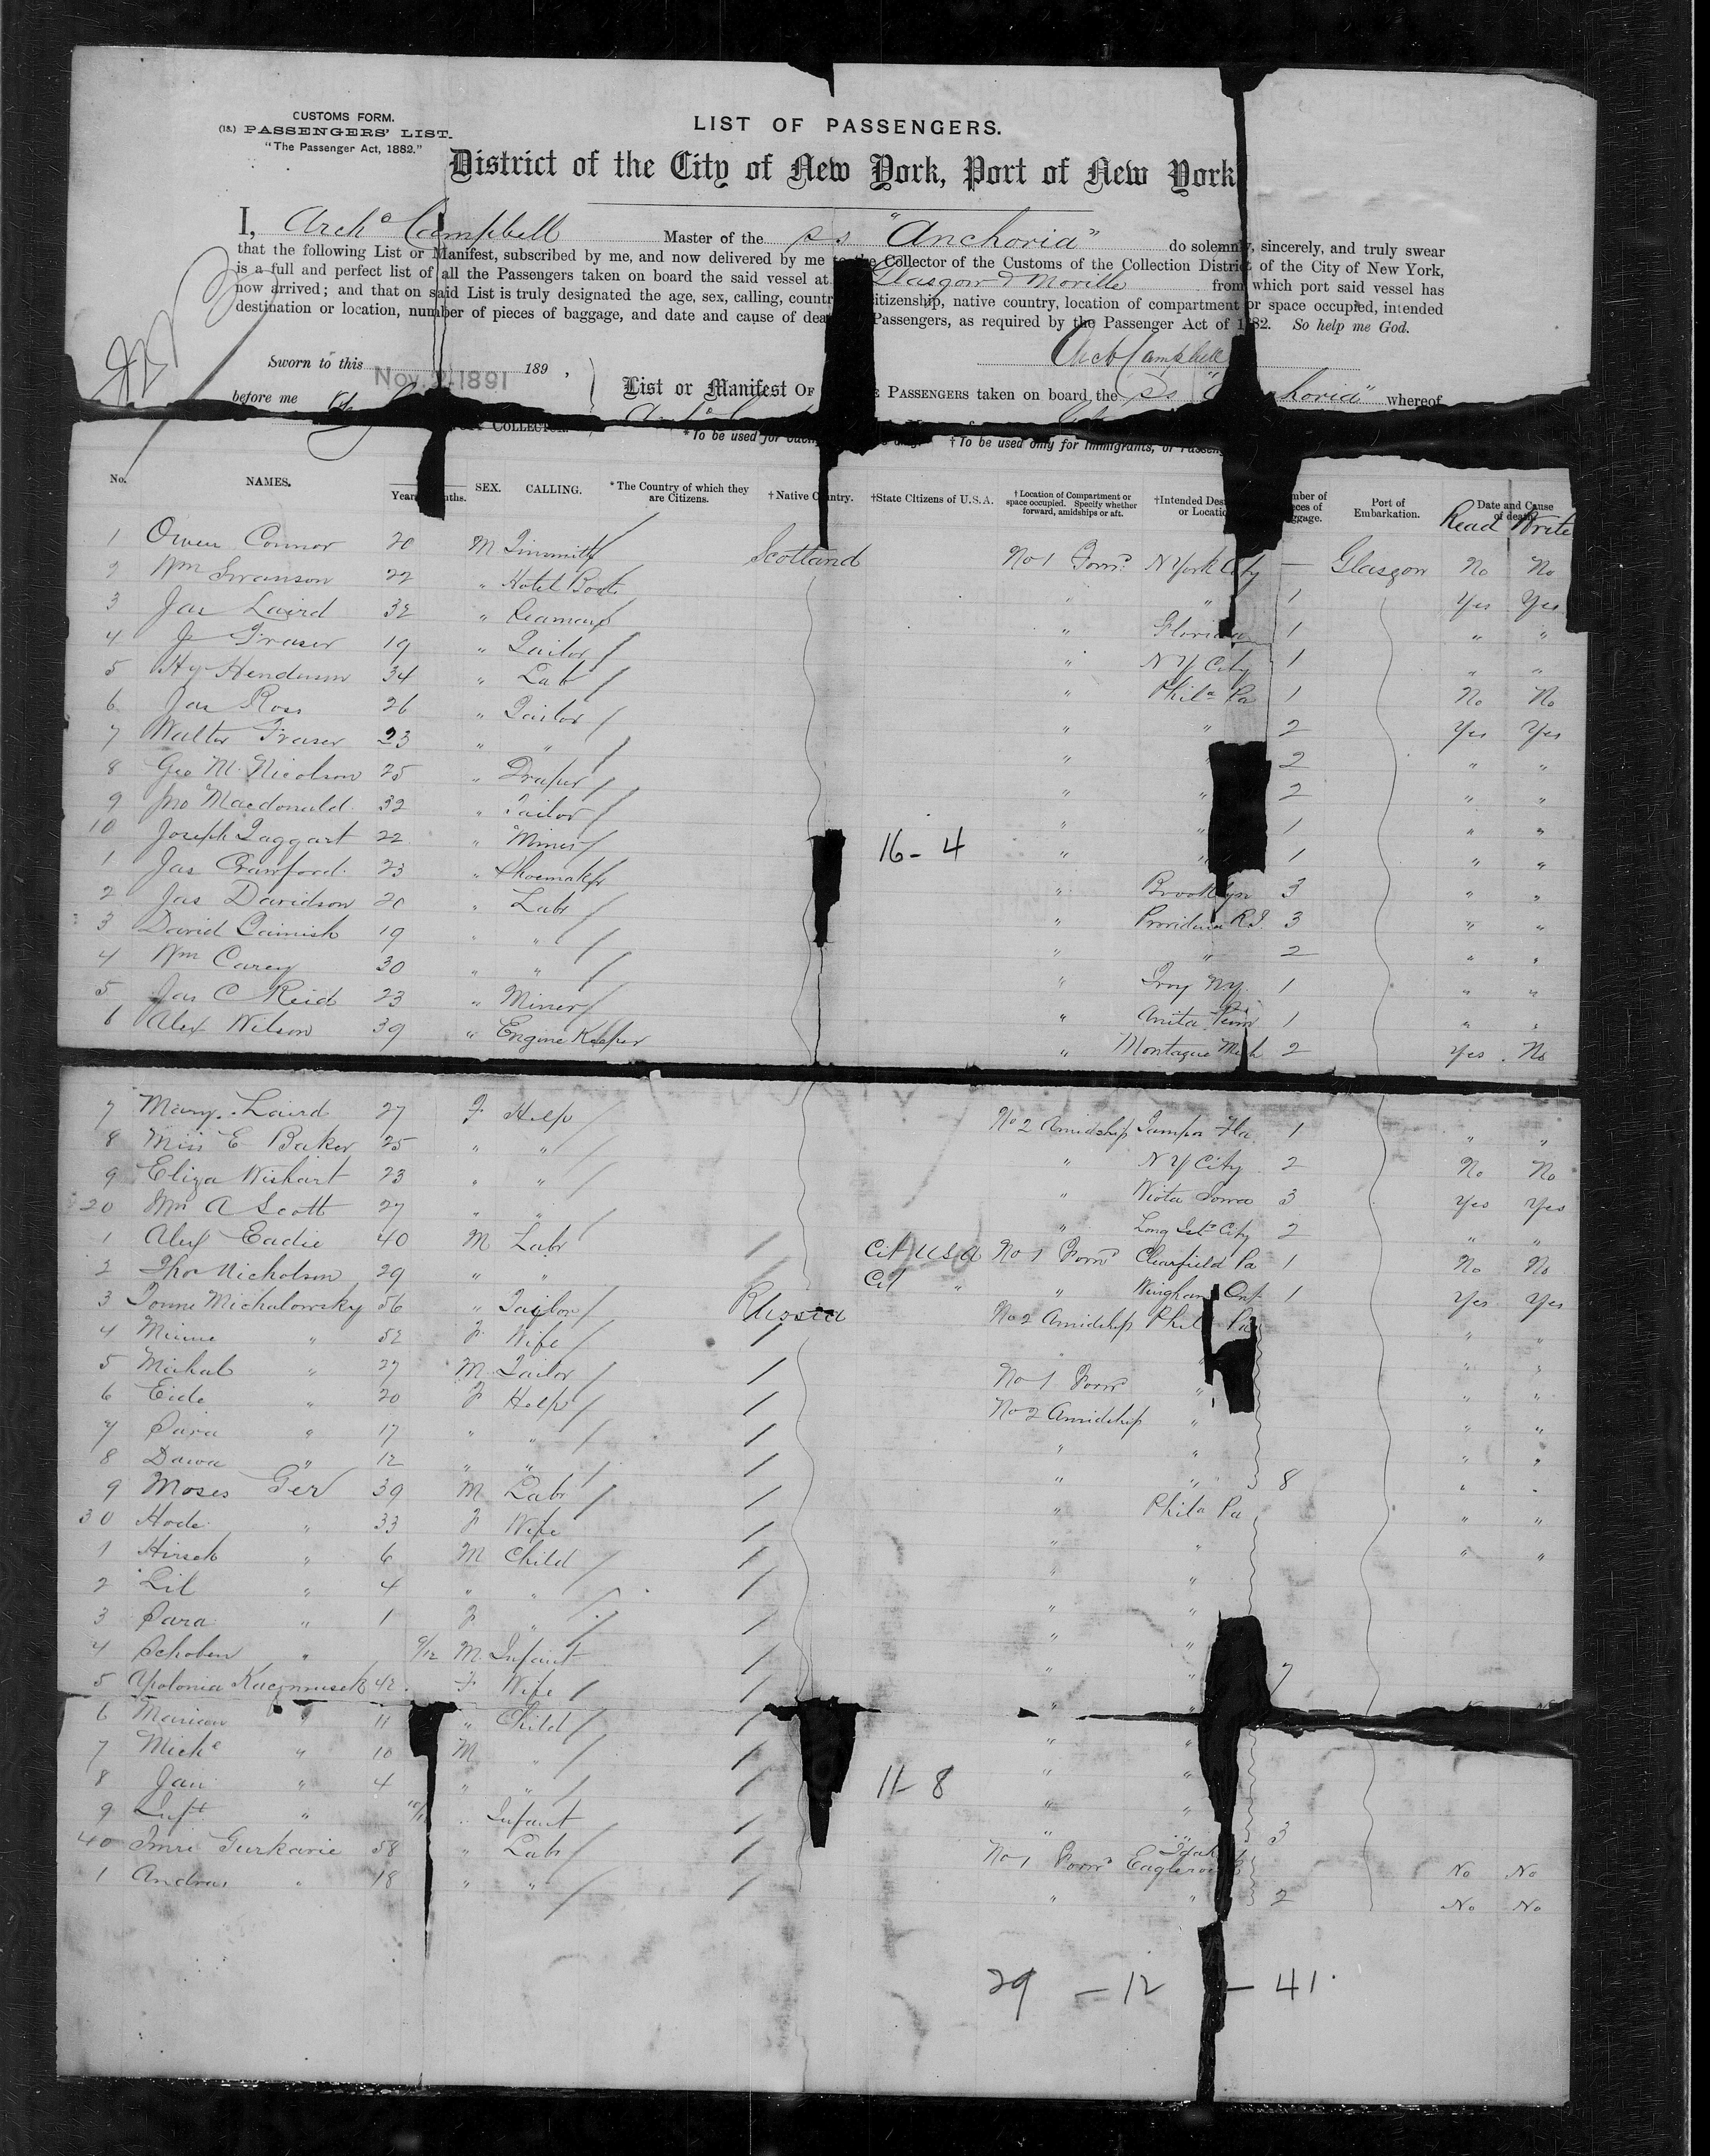 CUSTOMS FORM.
(18.) PASSENGERS' LIST.
"The Passenger Act, 1882."
LIST OF PASSENGERS.
District of the City of New York, Port of New York
I, Archd Campbell Master of the ss "Anchoria" do solemnly, sincerely, and truly swear
that the following List or Manifest, subscribed by me, and now delivered by me to the Collector of the Customs of the Collection District of the City of New York,
is a full and perfect list of all the Passengers taken on board the said vessel at Glasgow & Moville from which port said vessel has
now arrived; and that on said List is truly designated the age, sex, calling, countr citizenship, native country, location of compartment or space occupied, intended
destination or location, number of pieces of baggage, and date and cause of dea Passengers, as required by the Passenger Act of 1882. So help me God.
Arch Campbell
Sworn to this Nov. 2 1891 189 ,
before me
List or Manifest OF PASSENGERS taken on board the ss "Anchoria" whereof
COLLECTOR.
*To be used for †To be used only for Immigrants, or
No. NAMES. Years Months. SEX. CALLING. *The Country of which they are Citizens. †Native Country. †State Citizens of U.S.A. †Location of Compartment or space occupied. Specify whether forward, amidships or aft. †Intended Des or Locatio mber of eces of ggage. Port of Embarkation. Date and Cause of death Read Write
1 Owen Connor 20 M Tinsmith Scotland No 1 Forwd N York City — Glasgow No No
2 Wm Swanson 22 " Hotel Boots " " 1 Yes Yes
3 Jas Laird 32 " Seaman " Florida 1 " "
4 Jn Fraser 19 " Tailor " N Y City 1 " "
5 Hy Henderson 34 " Labr " Phila Pa 1 No No
6 Jas Ross 26 " Tailor " " 2 Yes Yes
7 Walter Fraser 23 " " " 2 " "
8 Geo M. Nicolson 25 " Draper " " 2 " "
9 Jno Macdonald 32 " Tailor " " 1 " "
10 Joseph Taggart 22 " Miner 16 - 4 " " 1 " "
1 Jas Crawford 23 " Shoemaker " Brooklyn 3 " "
2 Jas Davidson 20 " Labr " Providence R.I. 3 " "
3 David Cainish 19 " " " " 2 " "
4 Wm Carey 30 " " " Troy NY. 1 " "
5 Jas C Reid 23 " Miner " Anita Penn 1 " "
6 Alex Wilson 39 " Engine Keeper " Montague Mich 2 Yes No
7 Mary Laird 27 F Help No 2 Amidship Tampa Fla 1 " "
8 Miss E Baker 25 " " " N Y City 2 No No
9 Eliza Wishart 23 " " " Wiota Iowa 3 Yes Yes
20 Mrs A Scott 27 " " " Long Isld City 2 " "
1 Alex Eadie 40 M Labr Cit USA No 1 Forwd Clearfield Pa 1 No No
2 Thos Nicholson 29 " " Cit " " Wingham Ont 1 Yes Yes
3 Tonne Michalowsky 56 " Tailor Russia No 2 Amidship Phila Pa " "
4 Minne " 52 F Wife " " "
5 Michal " 27 M Tailor No 1 Forwd " " "
6 Eide " 20 F Help No 2 Amidship " " "
7 Sara " 17 " " " " " "
8 Dawa " 12 " " " " 8 " "
9 Moses Ger 39 M Labr " Phila Pa " "
30 Hode " 33 F Wife " " " "
1 Hirsch " 6 M Child " "
2 Lil " 4 " " " "
3 Sara " 1 F " " "
4 Schoben " 9/12 M Infant " " 7
5 Apolonia Kacznnusek 42 F Wife " "
6 Marian " 11 " Child " "
7 Miche " 10 M " " "
8 Jan " 4 " " 11 - 8 " "
9 " Infant " 3
40 Imri Gurkarie 58 " Labr No 1 Forwd Eaglerock Idaho No No
1 Andras " 18 " " " " 2 No No
29 - 12 - 41.